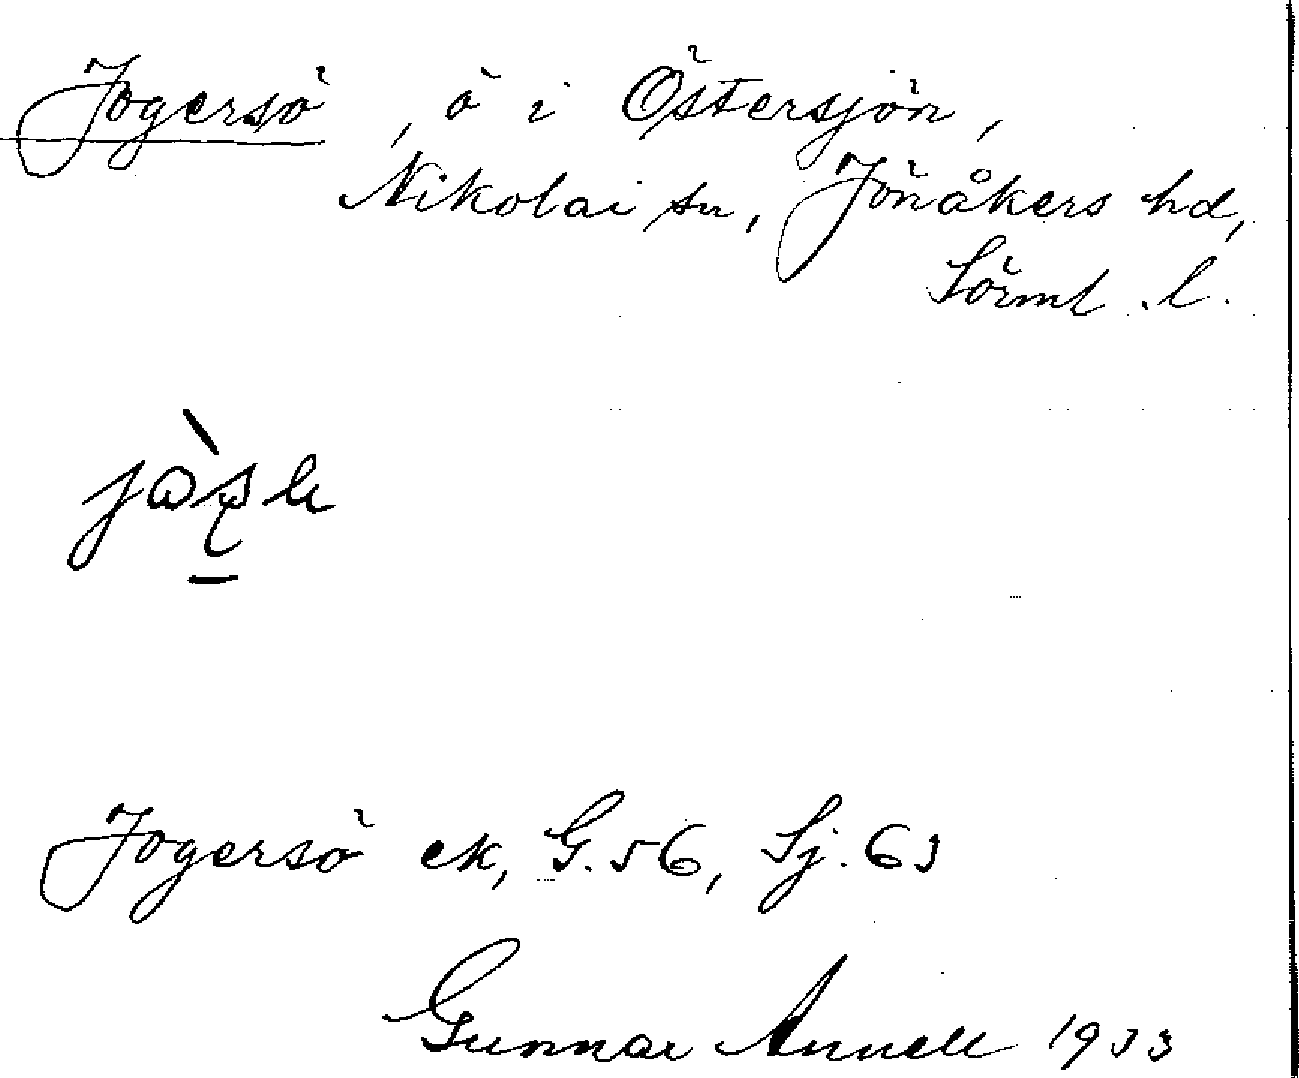 Jogersö, ö i Östersjön,
Nikolai sn, Jönåkers hd,
Sörml. l.
Jogersö ek, G. 56, Sj. 63
Gunnar Annell 1933